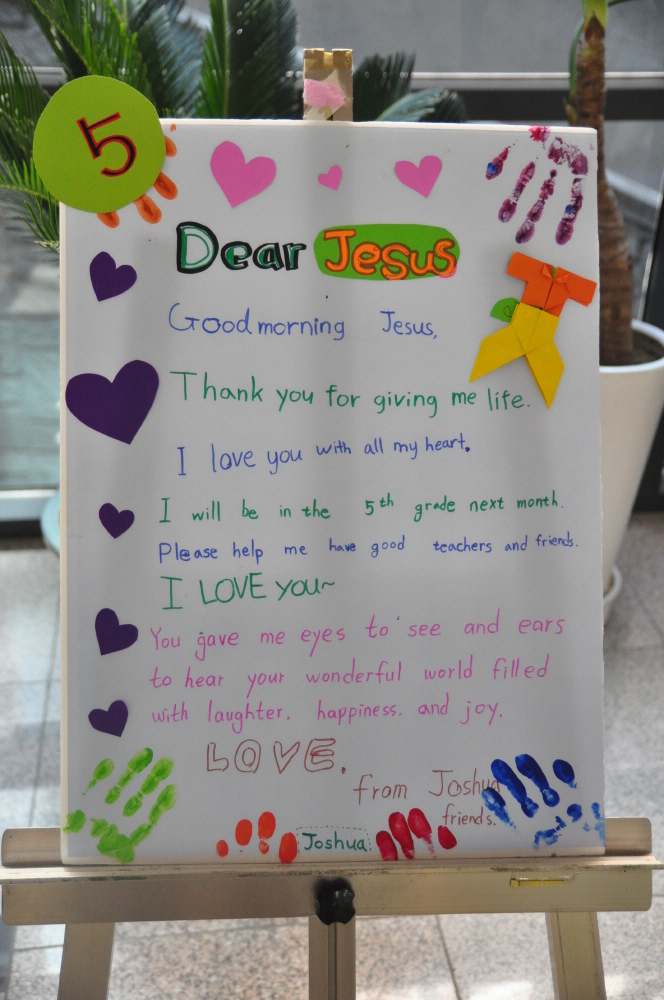 5
Dear Jesus
Good morning Jesus,
Thank you for giving me life.
I love you with all my heart.
I will be in the 5th grade next month.
Please help me have good teachers and friends.
I LOVE you~
You gave me eyes to see and ears
to hear your wonderful world filled
with laughter. happiness. and joy.
LOVE.
from Joshua
friends.
Joshua